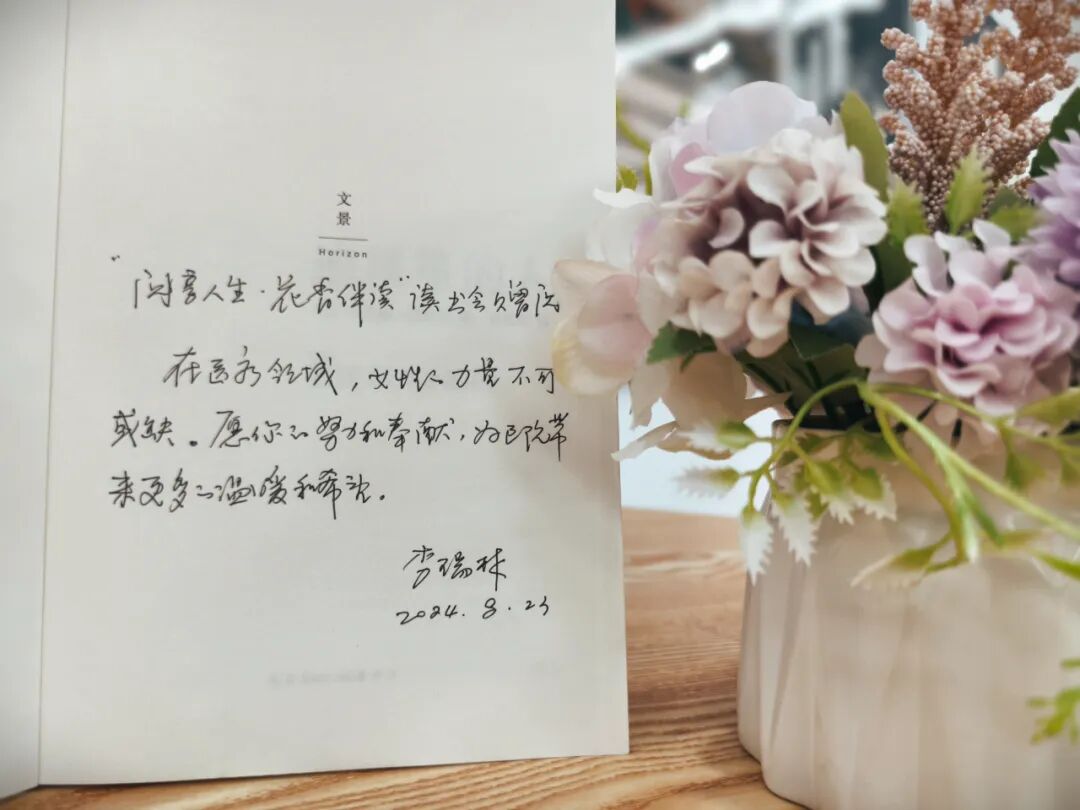 文
景
Horizon
"阅享人生·花香伴读"读书会赠阅
在医务领域，女性的力量不可
或缺。愿你的努力和奉献，为医院带
来更多的温暖和希望。
李瑞林
2024.8.23